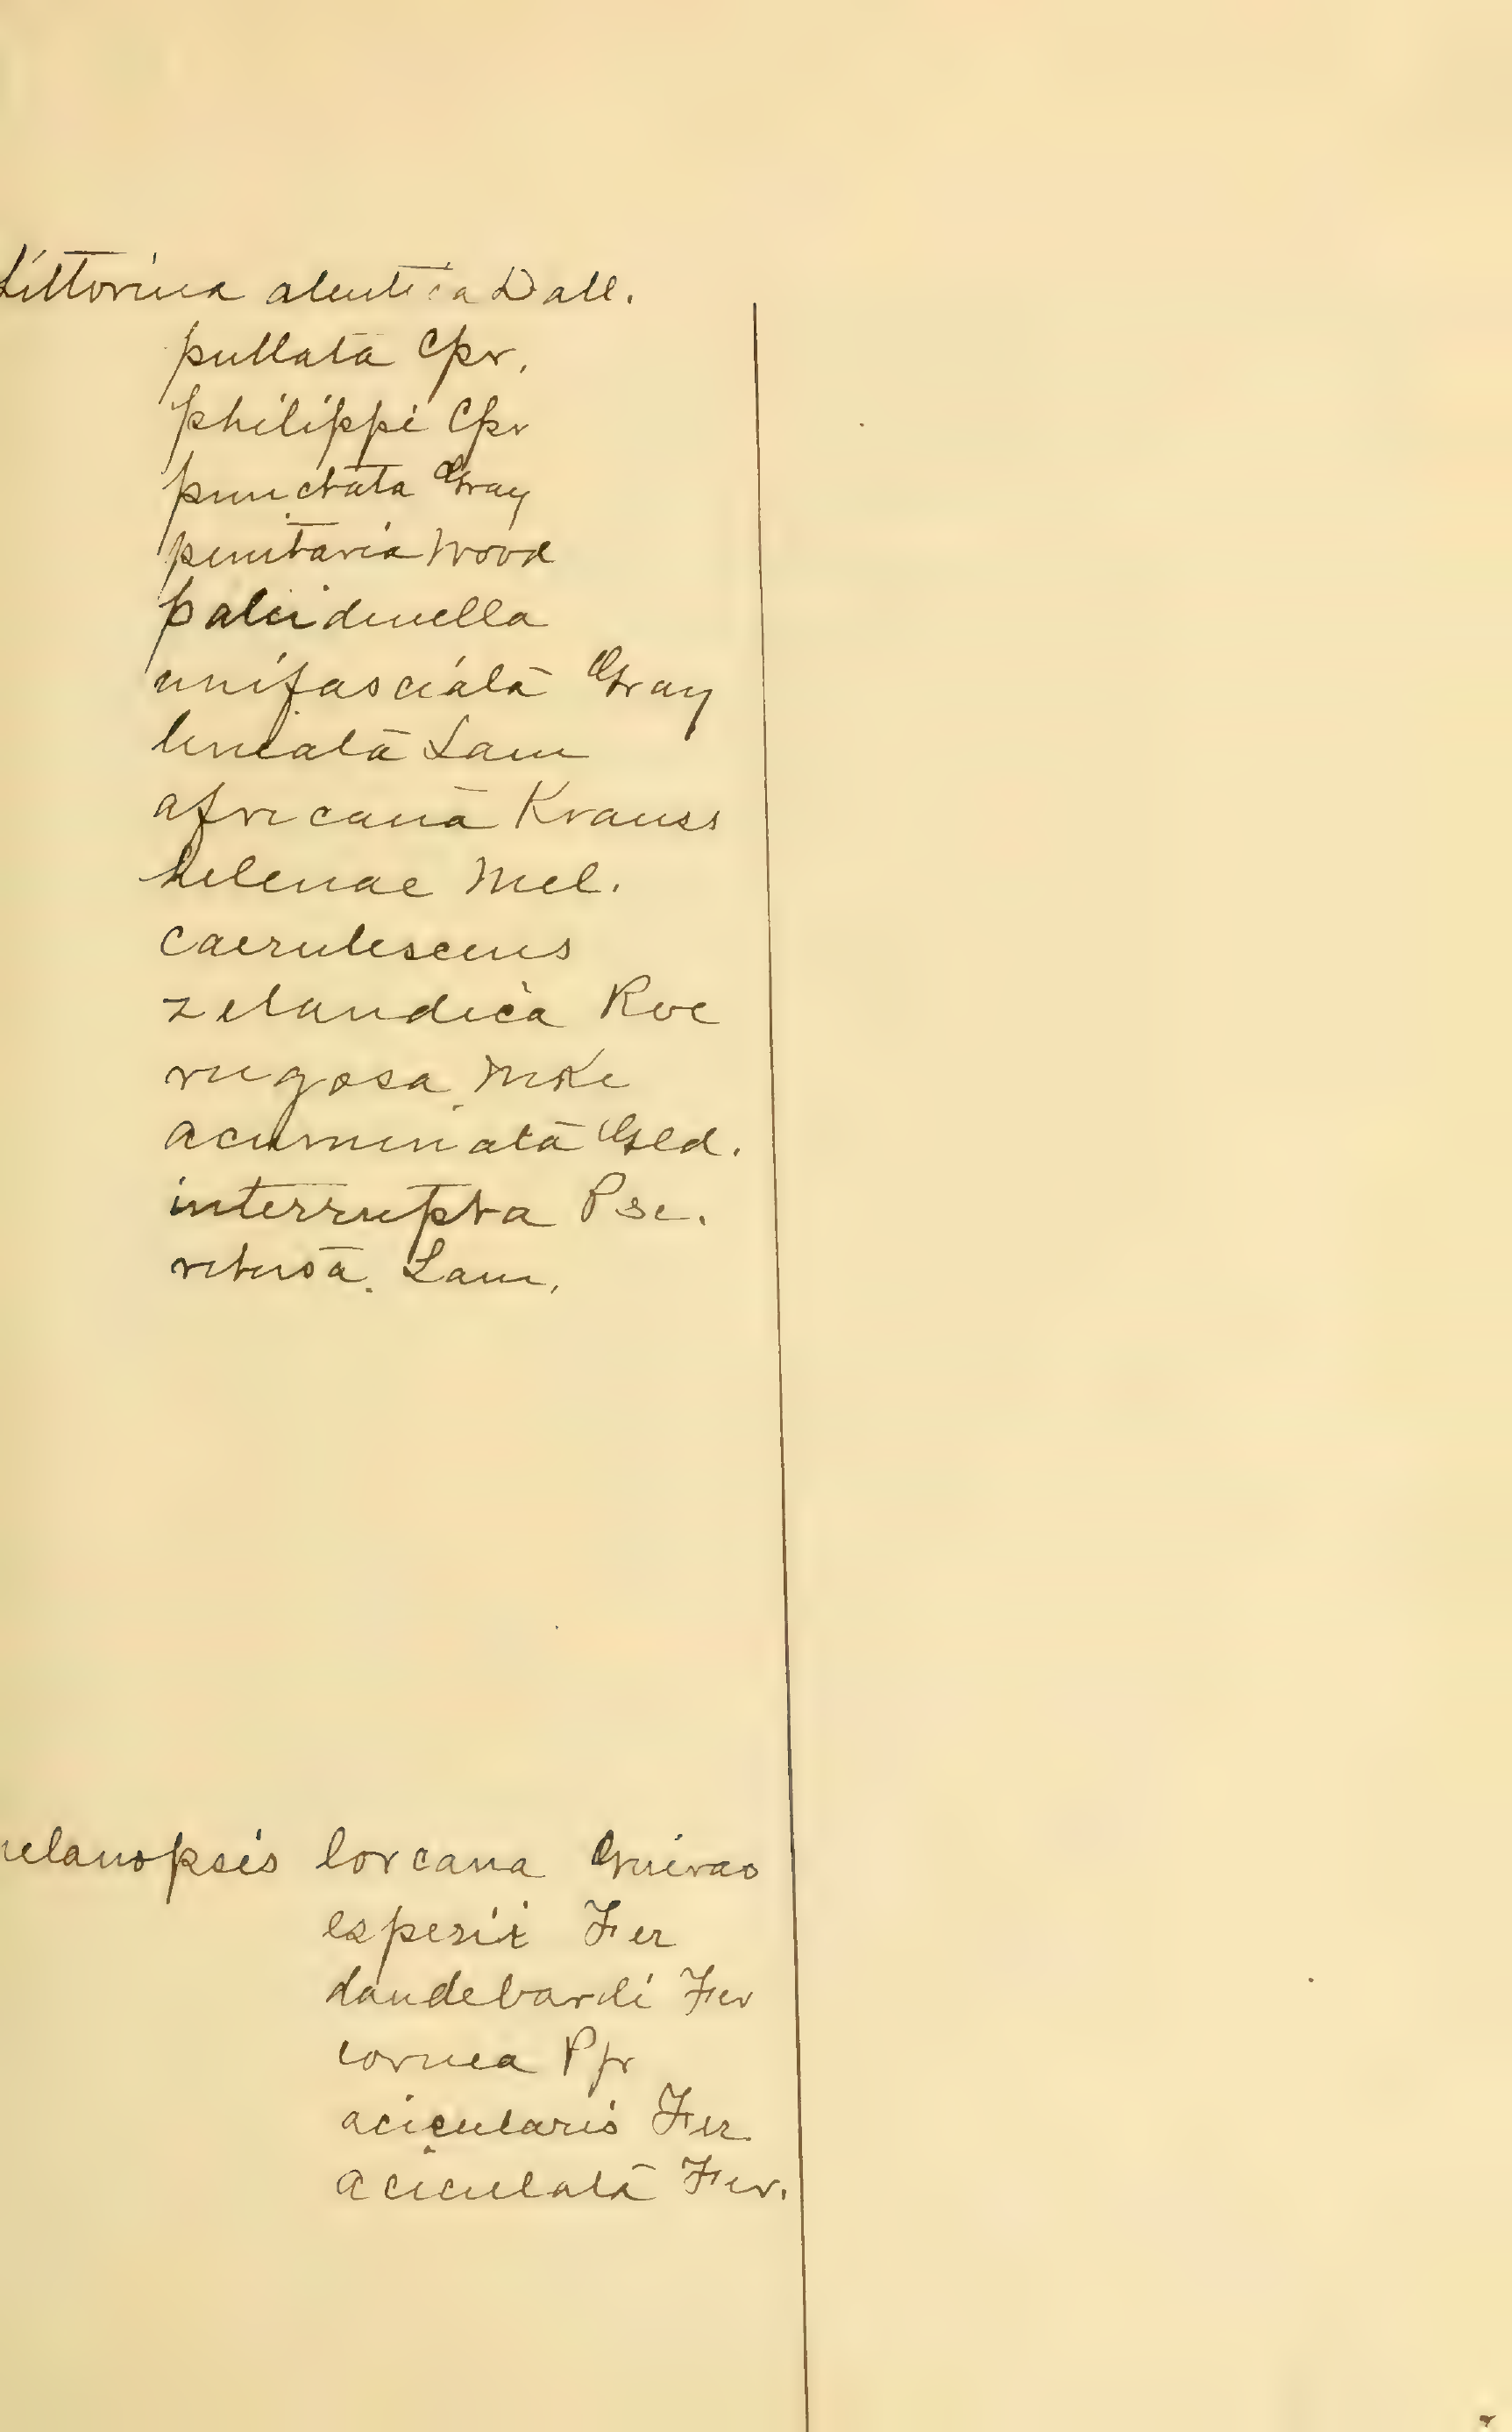 Littorina aleutica Dall.
pullata Cpr.
philippi Cpr
punctata Gray
penitaria Wood
paludinella
unifasciata Gray
lineata Lam
africana Krauss
helenae Mel.
caerulescens
zelandica Rve
rugosa Mke
acuminata Gld.
interrupta Pse.
retusa. Lam.
melanopsis lorcana Guirao
esperii Fer
daudebardi Fer
cornea Pfr
acicularis Fer.
aciculata Fer.